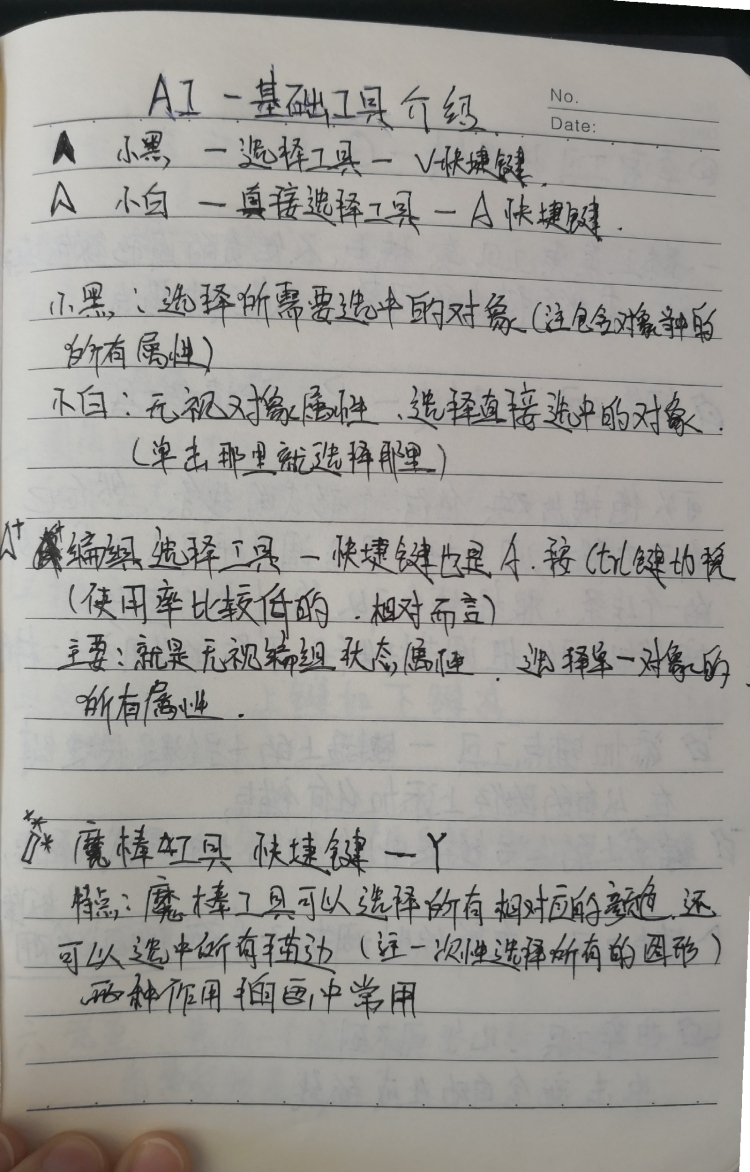 AI - 基础工具介绍
No.
Date:
小黑 - 选择工具 - V快捷键.
小白 - 直接选择工具 - A 快捷键.
小黑:选择所需要选中的对象(注包含对象中的
所有属性)
小白:无视对象属性、选择直接选中的对象.
(单击那里就选择那里)
编组选择工具 - 快捷键也是A.按Ctrl键切换
(使用率比较低的.相对而言)
主要:就是无视编组状态属性.选择单一对象的
所有属性.
魔棒工具 快捷键 - Y
特点:魔棒工具可以选择所有相对应的颜色.还
可以选中所有描边(注一次性选择所有的图形)
两种作用 插画中常用